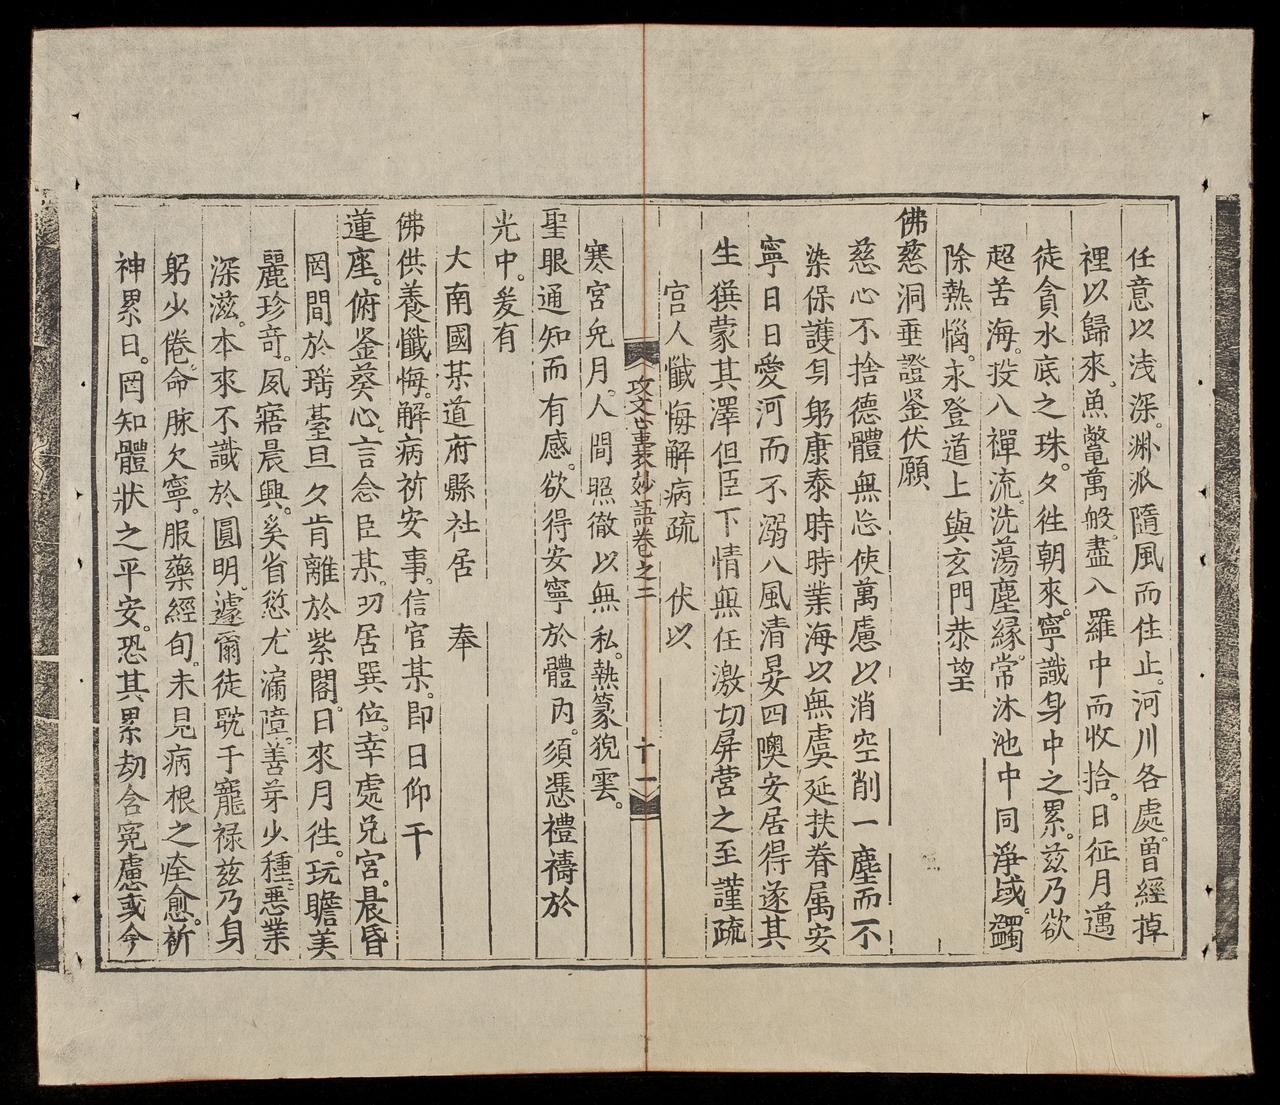 任意以浅深。淋派隨風而住止。河川各處。曾經掉
裡以歸來。魚鱉萬般。盡入羅中而收拾。日征月邁
徒貪水底之珠。夕徃朝來。寧識身中之累。茲乃欲
超苦海。投八禪流。洗蕩塵緣。常沐池中同淨域。蠲
除熱惱。永登道上與玄門恭望
佛慈洞垂證鉴伏願
慈心不捨德體無忘使萬慮以消空削一塵而不
染保護身躬康泰時時業海以無虞延扶眷属安
寧日日愛河而不溺八風清晏四噢安居得遂其
生獲蒙其澤但臣下情無任激切屏营之至謹疏
宮人懺悔解病疏 伏以
寒宮皃月。人間照徹以無私。熱篆猊雲。
聖眼通知而有感。欲得安寧於體内。須憑禮禱於
光中。爰有
大南國某道府縣社居 奉
佛供養懺悔。解病祈安事。信官某。即日仰干
蓮座。俯鉴葵心。言念臣某。叨居巽位。幸處兌宮。晨昏
罔間於瑶䑓旦夕肯離於紫閣。日來月徃。玩瞻美
麗珍奇。夙寤晨興。奚省愆尤漏障。善芽少種。悪業
深滋。本來不識於圓明。遽爾徒耽于寵禄兹乃身
躬少倦。命脉欠寧。服藥經旬。未見病根之痊愈。祈
神累日。罔知體狀之平安。恐其累劫含冤慮或今
攻文心事裴妙語卷之三 十一